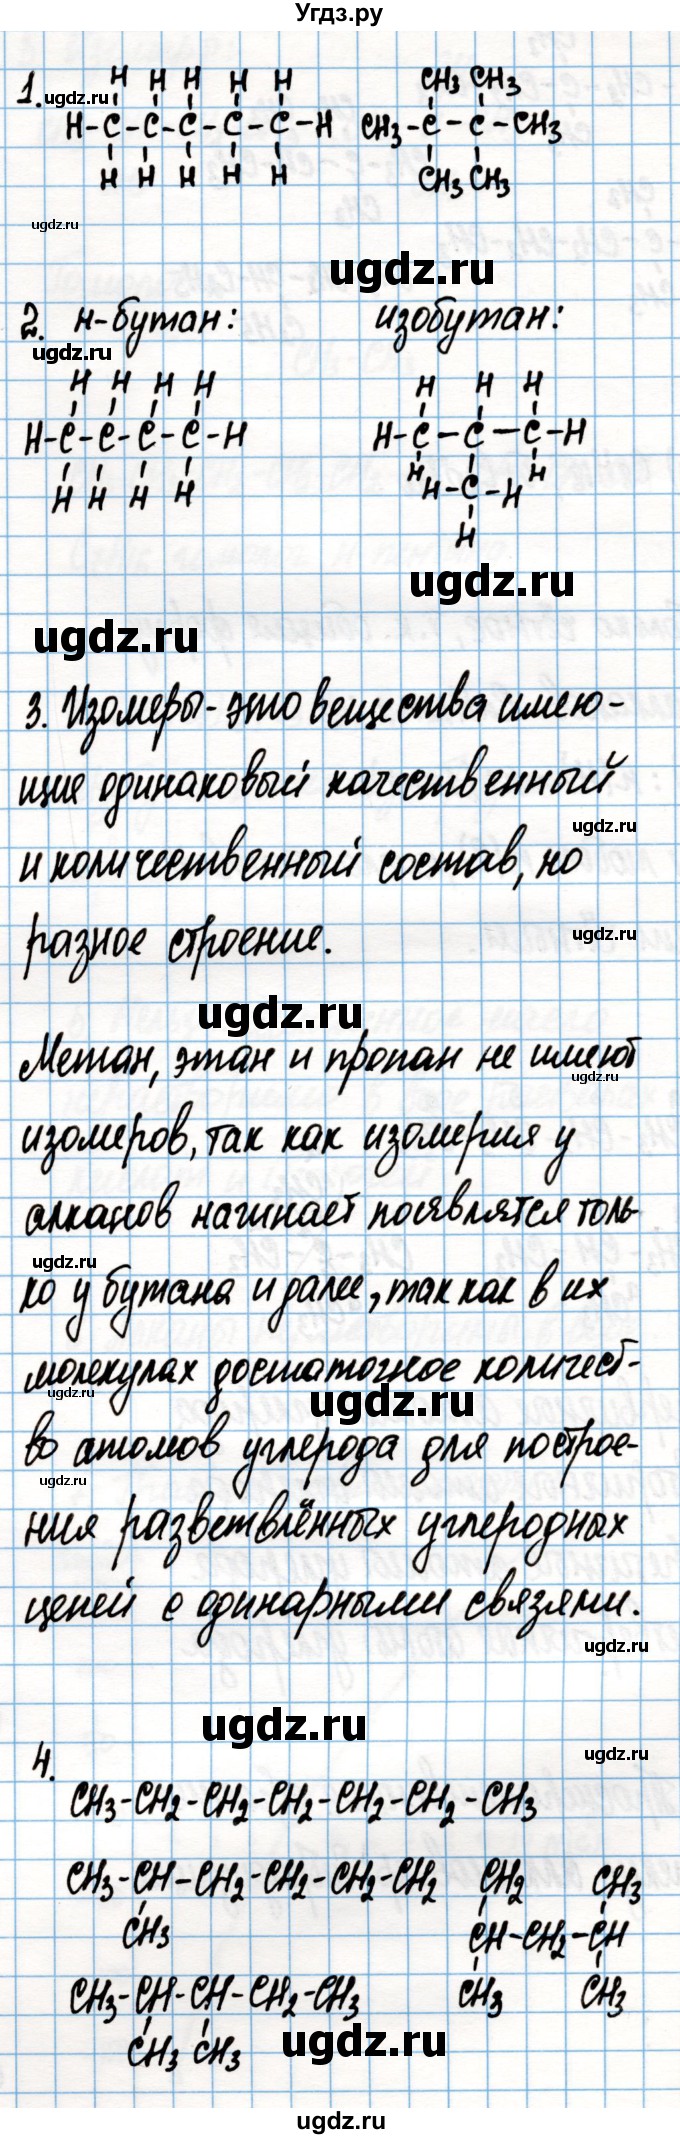 Угдз.ру
1.
H H H H H
H-C-C-C-C-C-H
H H H H H
CH3 CH3
CH3-C-C-CH3
CH3 CH3
ugdz.ru
ugdz.ru
ugdz.ru
2. н-бутан: изобутан:
ugdz.ru
H H H H
H-C-C-C-C-H
H H H H
H H H
H-C-C-C-H
H H-C-H H
H
ugdz.ru
ugdz.ru
3. Изомеры-это вещества имею-
щие одинаковый качественный
ugdz.ru
и количественный состав, но
разное строение.
ugdz.ru
ugdz.ru
Метан, этан и пропан не имеют
ugdz.ru
изомеров, так как изомерия у
алканов начинает появлятся толь-
ugdz.ru
ко у бутана и далее, так как в их
молекулах достаточное количест-
ugdz.ru
ugdz.ru
во атомов углерода для построе-
ugdz.ru
ния разветвлённых углеродных
цепей с одинарными связями.
ugdz.ru
ugdz.ru
ugdz.ru
4.
CH3-CH2-CH2-CH2-CH2-CH2-CH3
CH3-CH-CH2-CH2-CH2-CH2
CH3
CH2 CH3
CH-CH2-CH
CH3 CH3
CH3-CH-CH-CH2-CH3
CH3 CH3
ugdz.ru
ugdz.ru